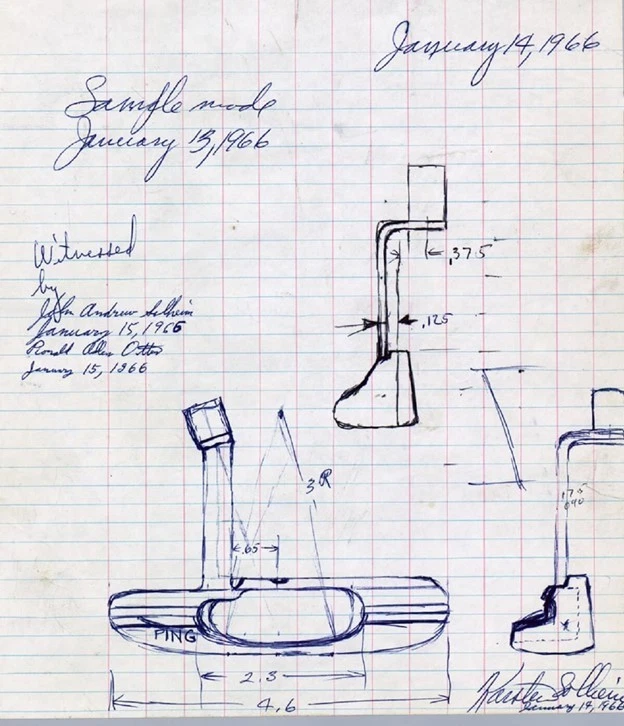 January 14, 1966
Sample made
January 13, 1966
Witnessed
by
John Andrew Solheim
January 15, 1966
Ronald Allen Otto
January 15, 1966
.375
.125
3 R
.65
.175
.090
PING
2.3
4.6
Karsten Solheim
January 14, 1966